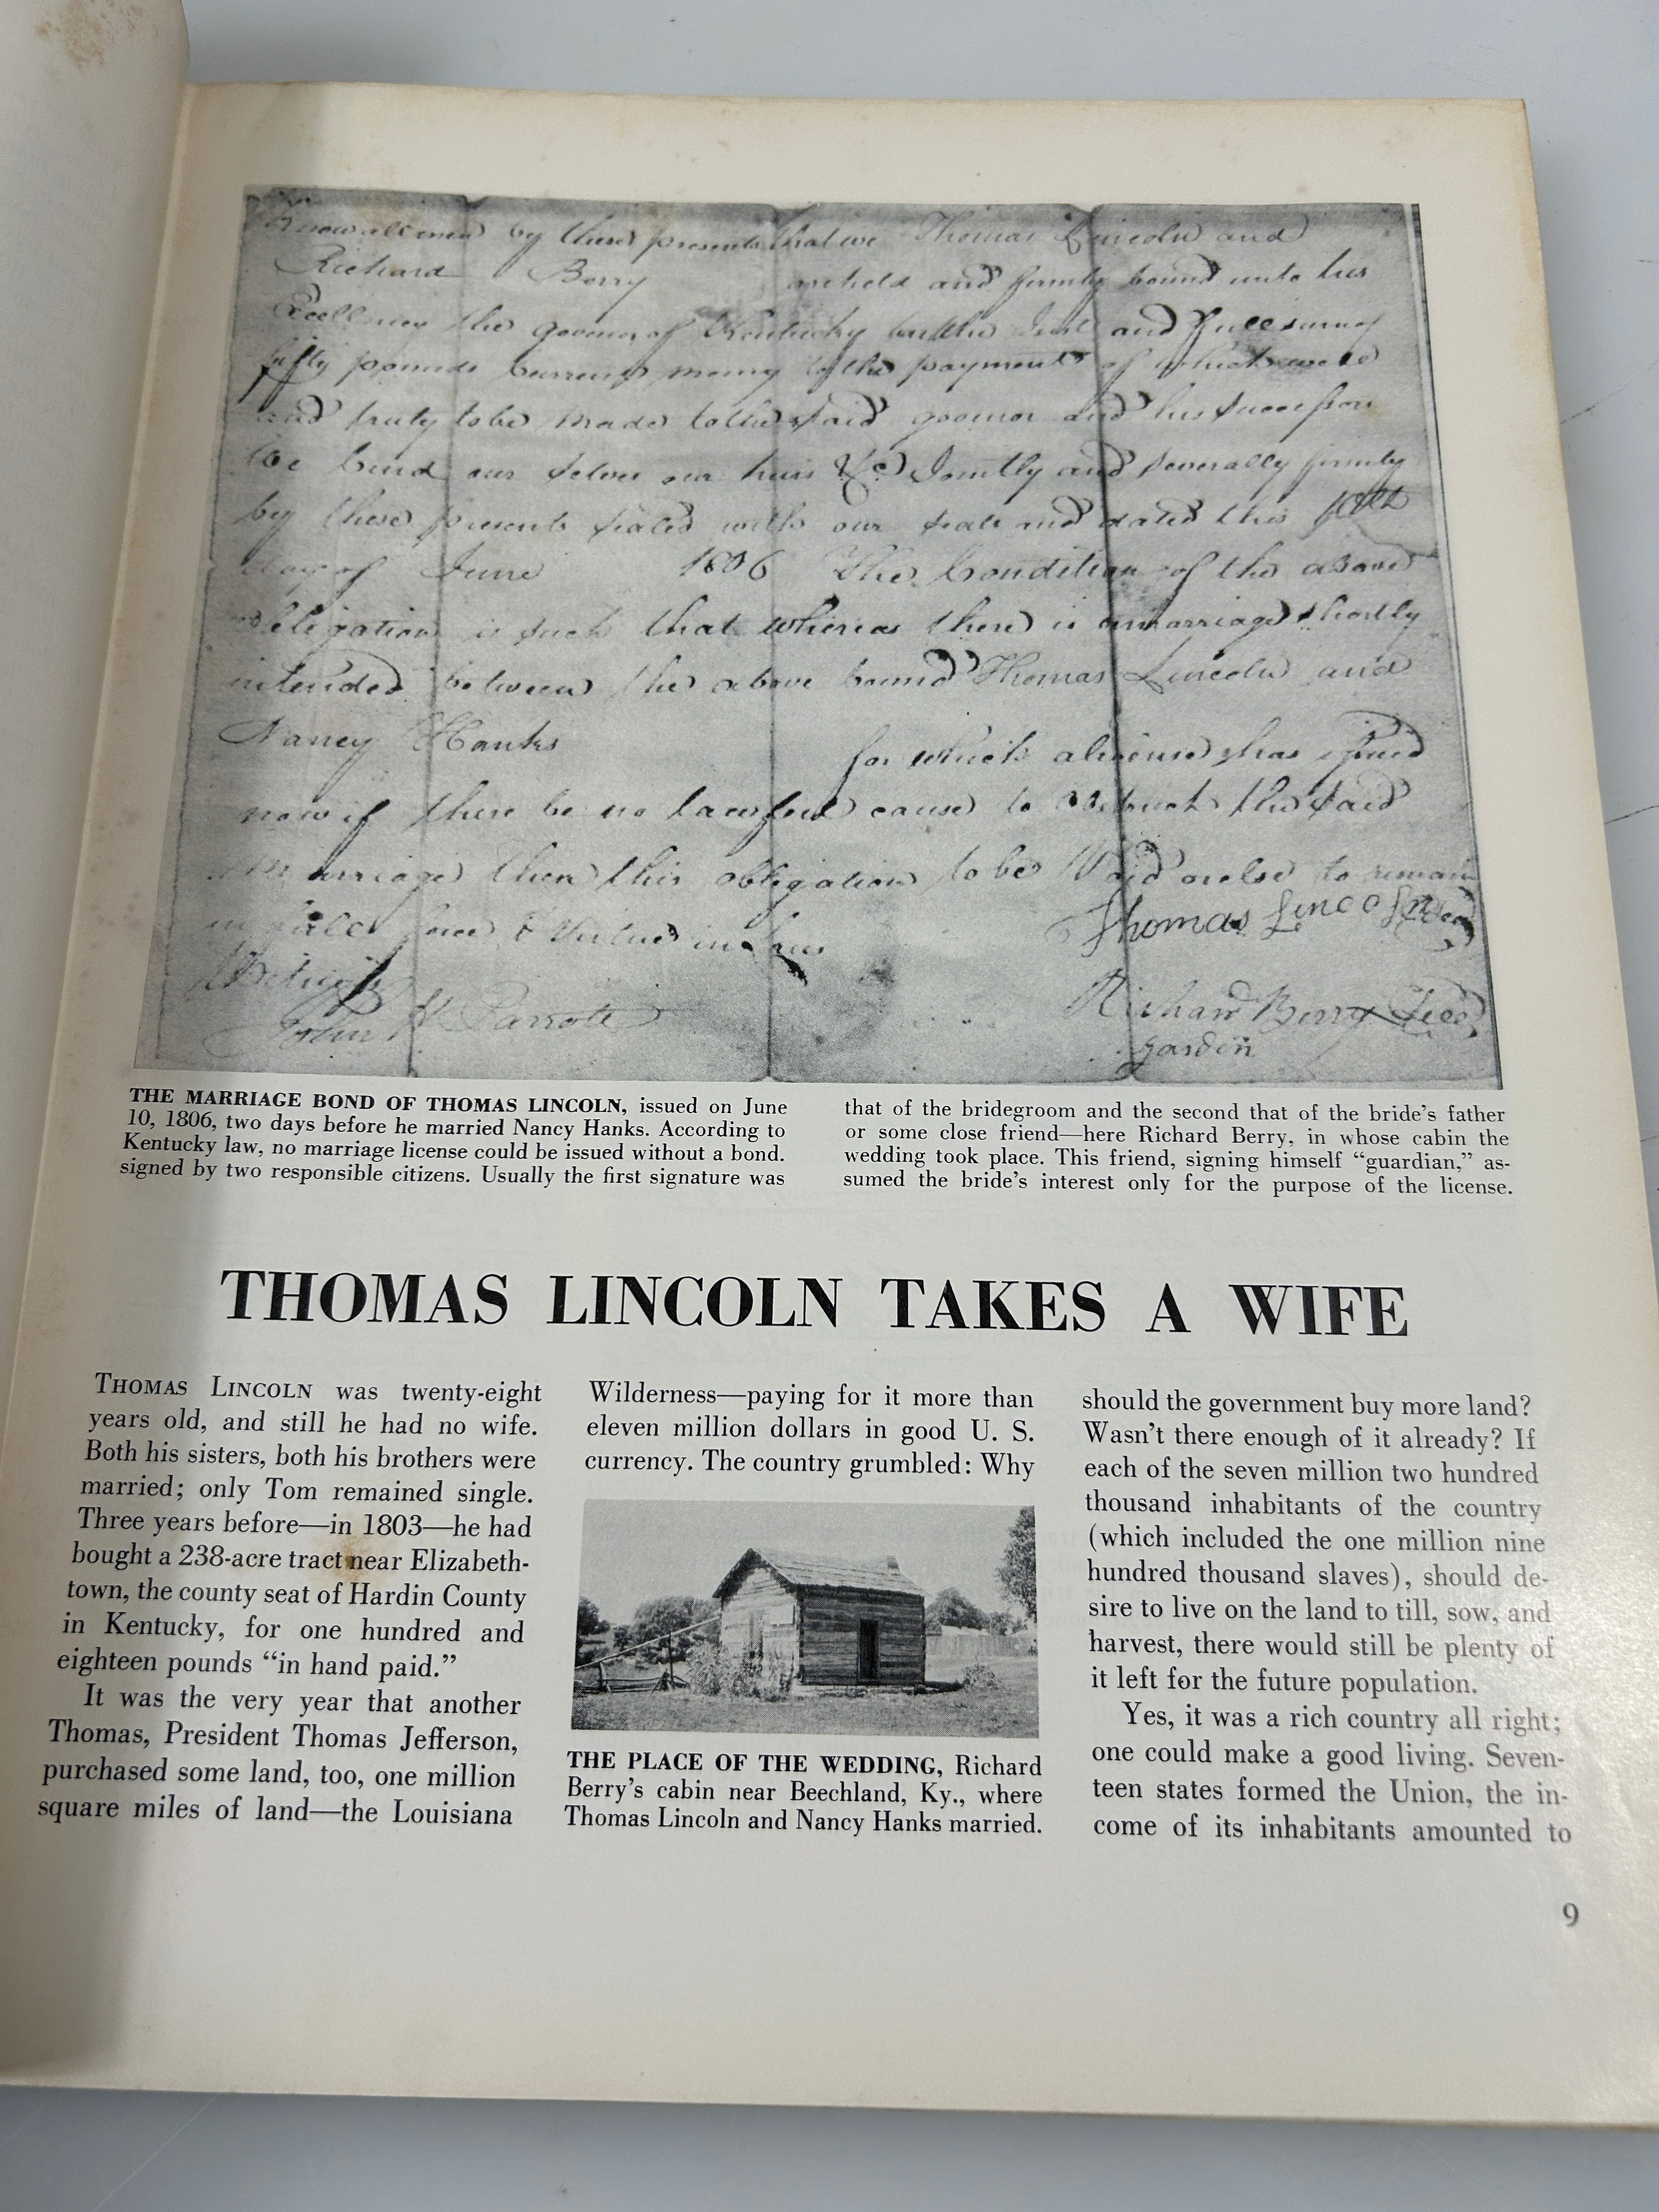 Know all men by these presents that we Thomas Lincoln and
Richard Berry are held and firmly bound unto his
Excellency the governor of Kentucky in the Just and full sum of
fifty pounds current money to the payment of which well
and truly to be made to the said governor and his successors
We bind our selves our heirs &c Jointly and severally firmly
by these presents sealed with our seals and dated this 10th
day of June 1806 The Condition of the above
obligation is such that whereas there is a marriage shortly
intended between the above bound Thomas Lincoln and
Nancy Hanks for which a license has issued
now if there be no lawful cause to obstruct the said
marriage then this obligation to be Void or else to remain
in full force & Virtue in law
Thomas Lincoln
Witness
John H Parrott
Richard Berry
garden
THE MARRIAGE BOND OF THOMAS LINCOLN, issued on June
10, 1806, two days before he married Nancy Hanks. According to
Kentucky law, no marriage license could be issued without a bond.
signed by two responsible citizens. Usually the first signature was
that of the bridegroom and the second that of the bride's father
or some close friend—here Richard Berry, in whose cabin the
wedding took place. This friend, signing himself "guardian," as-
sumed the bride's interest only for the purpose of the license.
THOMAS LINCOLN TAKES A WIFE
THOMAS LINCOLN was twenty-eight
years old, and still he had no wife.
Both his sisters, both his brothers were
married; only Tom remained single.
Three years before—in 1803—he had
bought a 238-acre tract near Elizabeth-
town, the county seat of Hardin County
in Kentucky, for one hundred and
eighteen pounds "in hand paid."
It was the very year that another
Thomas, President Thomas Jefferson,
purchased some land, too, one million
square miles of land—the Louisiana
Wilderness—paying for it more than
eleven million dollars in good U. S.
currency. The country grumbled: Why
THE PLACE OF THE WEDDING, Richard
Berry's cabin near Beechland, Ky., where
Thomas Lincoln and Nancy Hanks married.
should the government buy more land?
Wasn't there enough of it already? If
each of the seven million two hundred
thousand inhabitants of the country
(which included the one million nine
hundred thousand slaves), should de-
sire to live on the land to till, sow, and
harvest, there would still be plenty of
it left for the future population.
Yes, it was a rich country all right;
one could make a good living. Seven-
teen states formed the Union, the in-
come of its inhabitants amounted to
9